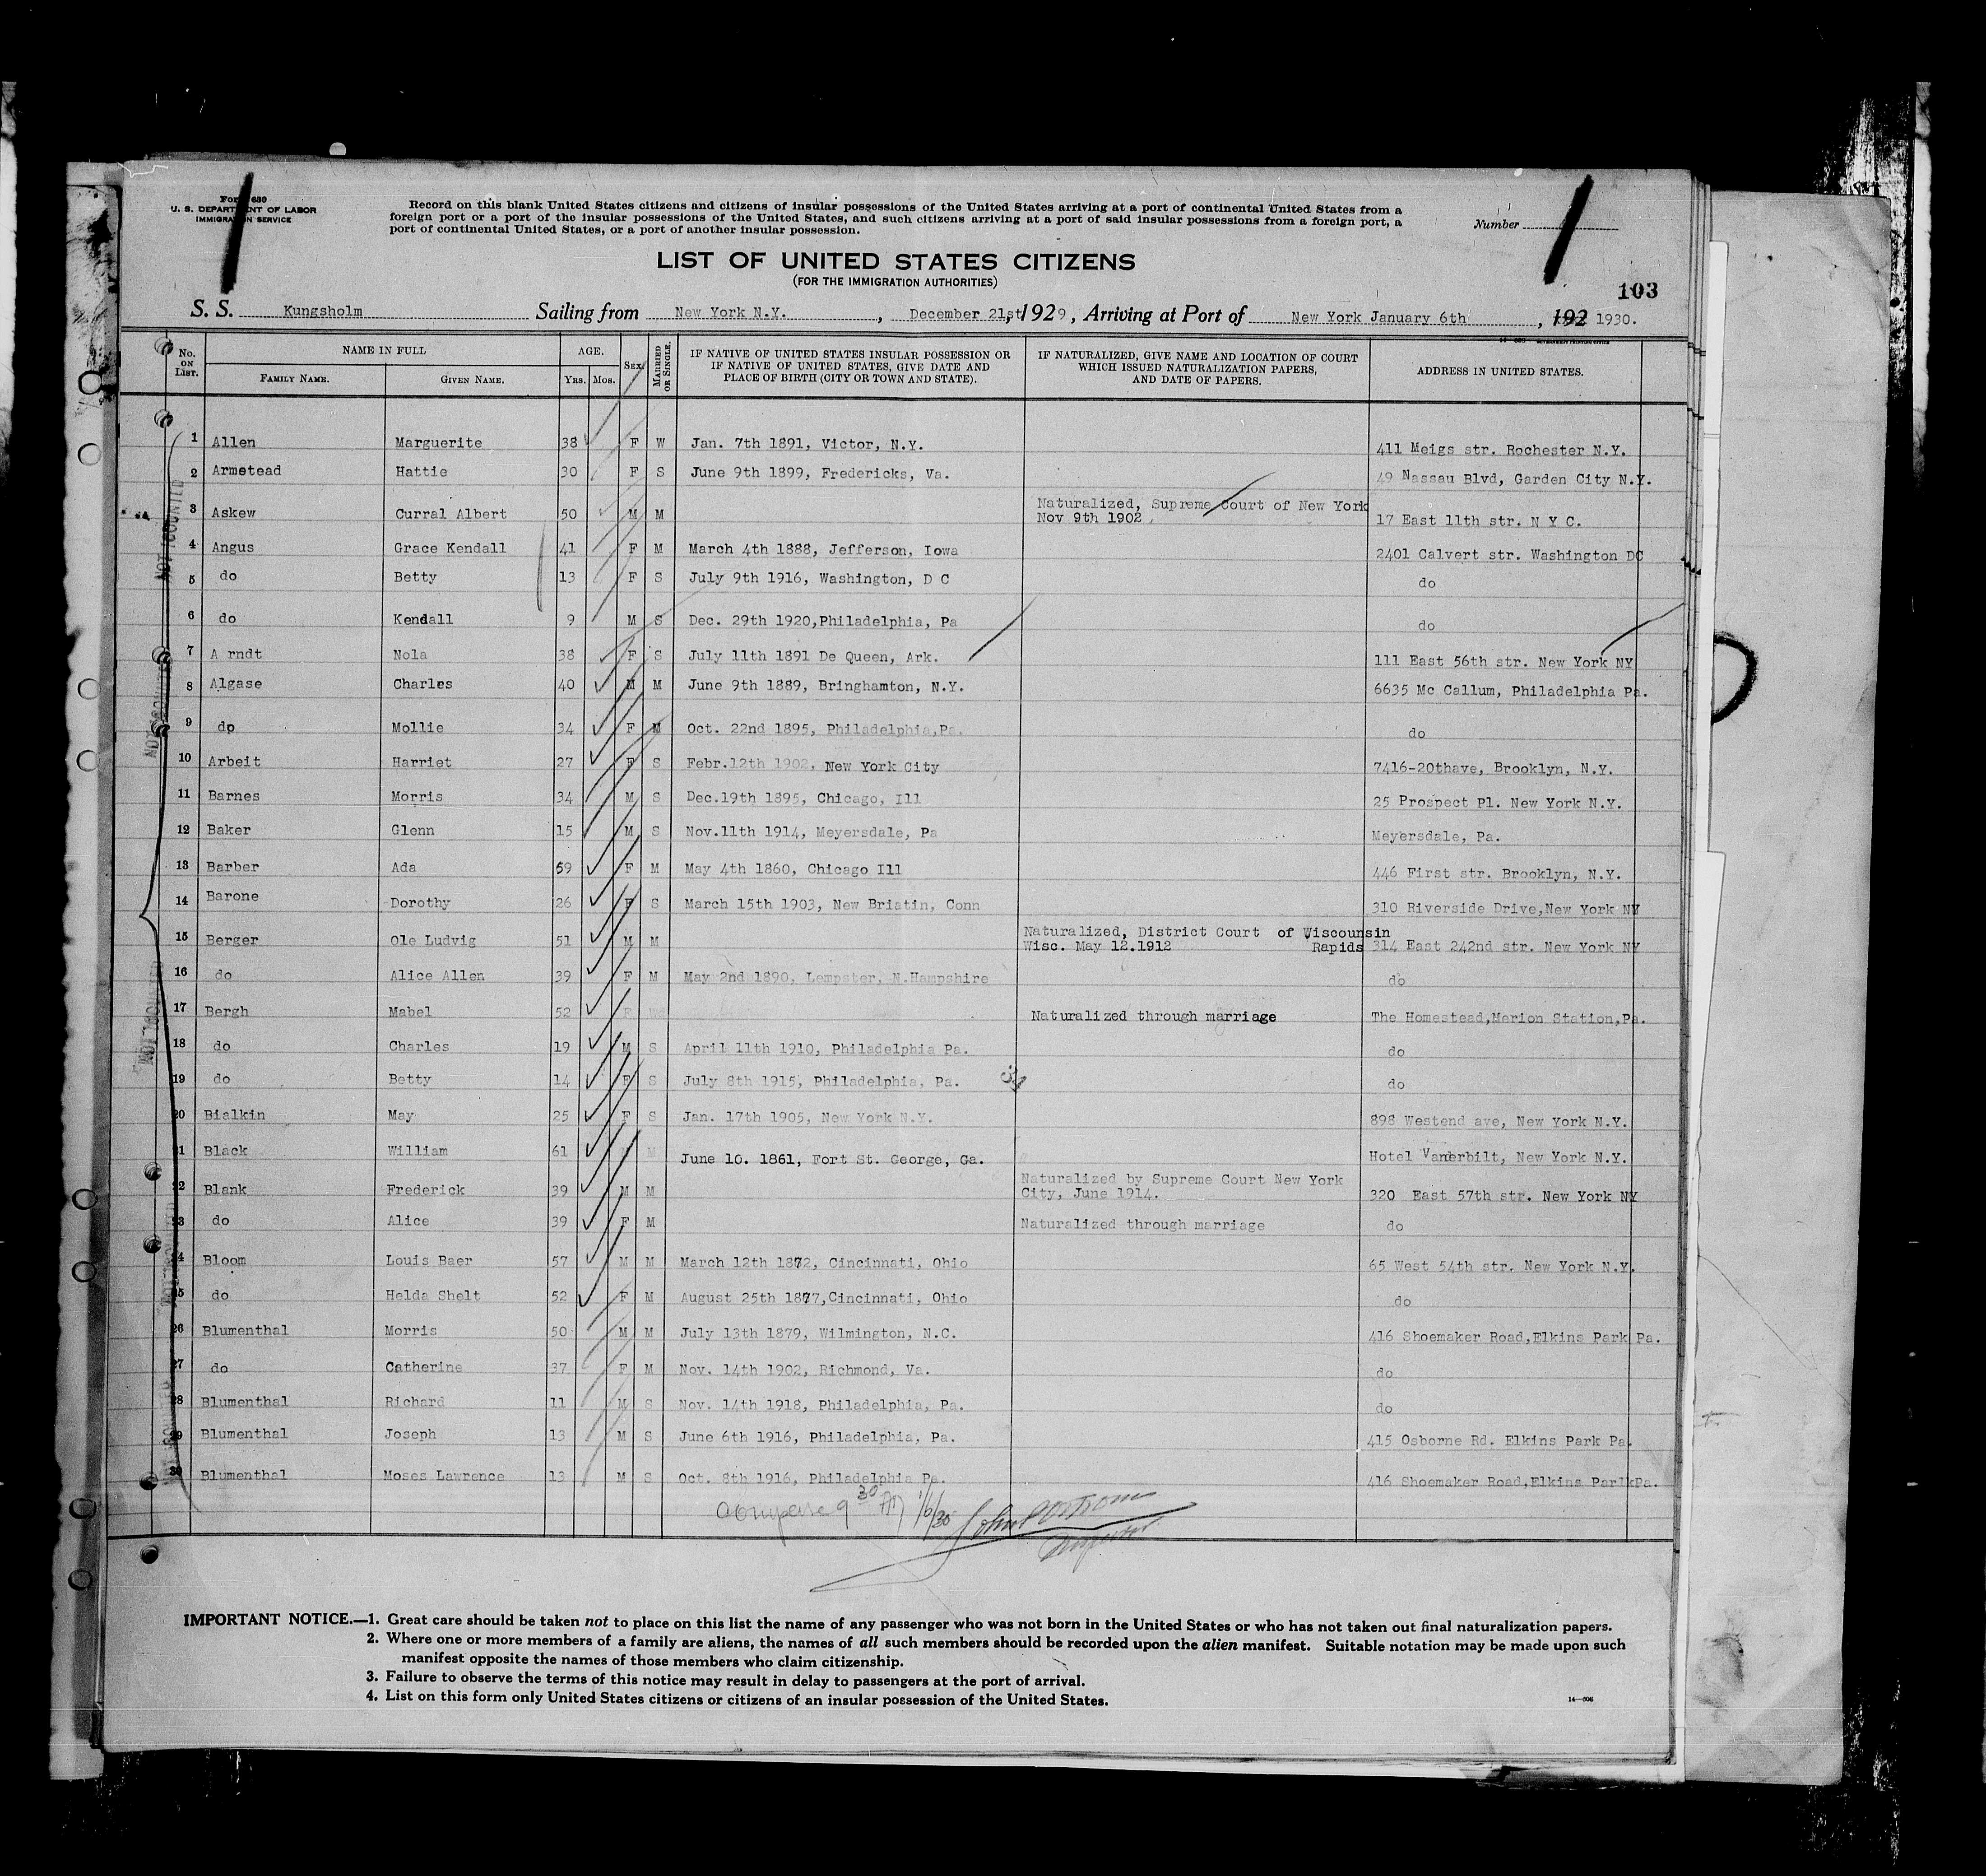 Form 680
U. S. DEPARTMENT OF LABOR
IMMIGRATION SERVICE
Record on this blank United States citizens and citizens of insular possessions of the United States arriving at a port of continental United States from a
foreign port or a port of the insular possessions of the United States, and such citizens arriving at a port of said insular possessions from a foreign port, a
port of continental United States, or a port of another insular possession.
Number
LIST OF UNITED STATES CITIZENS
(FOR THE IMMIGRATION AUTHORITIES)
103
S. S. Kungsholm Sailing from New York N.Y., December 21st, 1929, Arriving at Port of New York January 6th, 192 1930.
No. ON LIST. NAME IN FULL FAMILY NAME. GIVEN NAME. AGE. YRS. MOS. SEX MARRIED OR SINGLE. IF NATIVE OF UNITED STATES INSULAR POSSESSION OR IF NATIVE OF UNITED STATES, GIVE DATE AND PLACE OF BIRTH (CITY OR TOWN AND STATE). IF NATURALIZED, GIVE NAME AND LOCATION OF COURT WHICH ISSUED NATURALIZATION PAPERS, AND DATE OF PAPERS. ADDRESS IN UNITED STATES.
1 Allen Marguerite 38 F W Jan. 7th 1891, Victor, N.Y. 411 Meigs str. Rochester N.Y.
2 Armstead Hattie 30 F S June 9th 1899, Fredericks, Va. 49 Nassau Blvd, Garden City N.Y.
3 Askew Curral Albert 50 M M Naturalized, Supreme Court of New York Nov 9th 1902 17 East 11th str. N Y C.
4 Angus Grace Kendall 41 F M March 4th 1888, Jefferson, Iowa 2401 Calvert str. Washington DC
5 do Betty 13 F S July 9th 1916, Washington, D C do
6 do Kendall 9 M S Dec. 29th 1920,Philadelphia, Pa do
7 A rndt Nola 38 F S July 11th 1891 De Queen, Ark. 111 East 56th str. New York NY
8 Algase Charles 40 M M June 9th 1889, Bringhamton, N.Y. 6635 Mc Callum, Philadelphia Pa.
9 do Mollie 34 F M Oct. 22nd 1895, Philadelphia,Pa. do
10 Arbeit Harriet 27 F S Febr.12th 1902, New York City 7416-20thave, Brooklyn, N.Y.
11 Barnes Morris 34 M S Dec.19th 1895, Chicago, Ill 25 Prospect Pl. New York N.Y.
12 Baker Glenn 15 M S Nov.11th 1914, Meyersdale, Pa Meyersdale, Pa.
13 Barber Ada 69 F M May 4th 1860, Chicago Ill 446 First str. Brooklyn, N.Y.
14 Barone Dorothy 26 F S March 15th 1903, New Bristin, Conn 310 Riverside Drive,New York NY
15 Berger Ole Ludvig 51 M M Naturalized, District Court of Wiscounsin Wisc. May 12.1912 Rapids 314 East 242nd str. New York NY
16 do Alice Allen 39 F M May 2nd 1890, Lempster, N.Hampshire do
17 Bergh Mabel 52 F Naturalized through marriage The Homestead,Marion Station,Pa.
18 do Charles 19 M S April 11th 1910, Philadelphia Pa. do
19 do Betty 14 F S July 8th 1915, Philadelphia, Pa. do
20 Bialkin May 25 F S Jan. 17th 1905, New York N.Y. 898 Westend ave, New York N.Y.
21 Black William 61 M June 10. 1861, Fort St. George, Ga. Hotel Vanerbilt, New York N.Y.
22 Blank Frederick 39 M M Naturalized by Supreme Court New York City, June 1914. 320 East 57th str. New York NY
23 do Alice 39 F M Naturalized through marriage do
24 Bloom Louis Baer 57 M M March 12th 1872, Cincinnati, Ohio 65 West 54th str. New York N.Y.
25 do Helda Shelt 52 F M August 25th 1877,Cincinnati, Ohio do
26 Blumenthal Morris 50 M M July 13th 1879, Wilmington, N.C. 416 Shoemaker Road,Elkins Park Pa.
27 do Catherine 37 F M Nov. 14th 1902, Richmond, Va. do
28 Blumenthal Richard 11 M S Nov. 14th 1918, Philadelphia, Pa. do
29 Blumenthal Joseph 13 M S June 6th 1916, Philadelphia, Pa. 415 Osborne Rd. Elkins Park Pa.
30 Blumenthal Moses Lawrence 13 M S Oct. 8th 1916, Philadelphia Pa. 416 Shoemaker Road,Elkins ParlkPa.
1/6/30
IMPORTANT NOTICE.—1. Great care should be taken not to place on this list the name of any passenger who was not born in the United States or who has not taken out final naturalization papers.
2. Where one or more members of a family are aliens, the names of all such members should be recorded upon the alien manifest. Suitable notation may be made upon such
manifest opposite the names of those members who claim citizenship.
3. Failure to observe the terms of this notice may result in delay to passengers at the port of arrival.
4. List on this form only United States citizens or citizens of an insular possession of the United States.